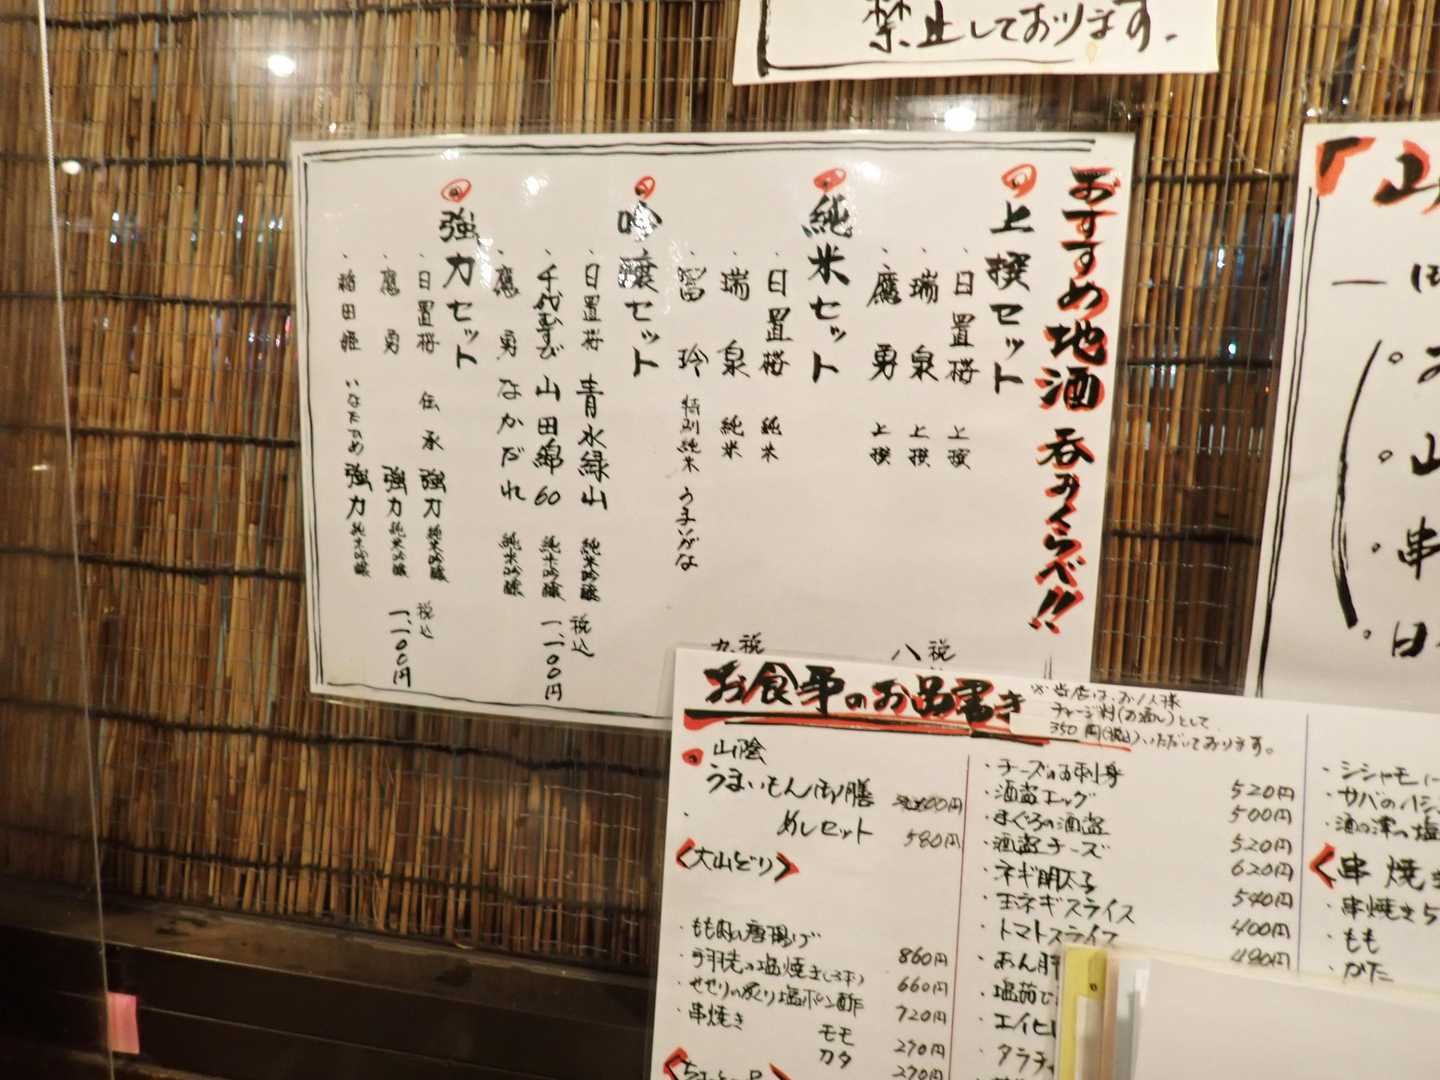 禁止しております。
おすすめ地酒 呑みくらべ!!
上撰セット
・日置桜 上撰
・瑞泉 上撰
・鷹勇 上撰
八 税
純米セット
・日置桜 純米
・瑞泉 純米
・冨玲 特別純米 うまいがな
九 税
吟醸セット
・日置桜 青水緑山 純米吟醸
・千代むすび 山田錦60 純米吟醸
・鷹勇 なかだれ 純米吟醸
税込 一、一〇〇円
強力セット
・日置桜 伝承 強力 純米吟醸
・鷹勇 強力 純米吟醸
・稲田姫 いなたひめ 強力 純米吟醸
税込 一、一〇〇円
お食事のお品書き
※当店は、お1人様
チャージ料(お通し)として
350円(税込)いただいております。
山陰
うまいもん御膳
・めしセット 580円
〈大山どり〉
・もも肉の唐揚げ 860円
・手羽先の塩焼き(3本) 660円
・せせりの炙り塩ポン酢 720円
・串焼き モモ 270円
カタ 270円
・チーズのお刺身 520円
・酒盗エッグ 500円
・まぐろの酒盗 520円
・酒盗チーズ 620円
・ネギ明太子 540円
・玉ネギスライス 400円
・トマトスライス 480円
・あん肝
・エイヒレ
・シシャモ
・サバの
・酒の
〈串焼き
・串焼き5
・もも
・かた
山
串